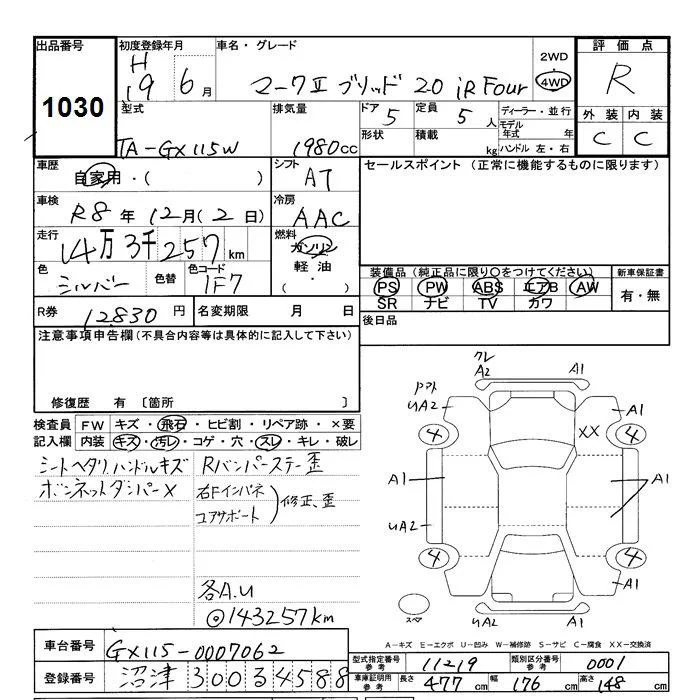 出品番号 初度登録年月 車名・グレード 2WD 評価点
1030 H19 6月 マークⅡ ブリッド 2.0 iR Four 4WD R
型式 排気量 ドア 5 定員 5人 ディーラー・並行 外装 内装
形状 積載 kg モデル年式 年 C C
TA-GX115W 1980cc ハンドル 左・右
車歴 シフト セールスポイント (正常に機能するものに限ります)
自家用・( ) AT
車検 冷房
R8年 12月(2日) AAC
走行 燃料
14万3千257km ガソリン
色 色替 色コード 軽油 装備品 (純正品に限り○をつけてください) 新車保証書
シルバー 1F7 ・( ) PS PW ABS エアB AW 有・無
SR ナビ TV カワ
R券 12830円 名変期限 月 日 後日品
注意事項申告欄 (不具合内容等は具体的に記入して下さい)
修復歴 有 〔箇所 〕
検査員 FW キズ・飛石・ヒビ割・リペア跡・×要
記入欄 内装 キズ・汚レ・コゲ・穴・スレ・キレ・破レ
シートヘタリ ハンドルキズ Rバンパーステー歪
ボンネットダンパー× 右Fインパネ
コアサポート 修正、歪
各A.U
◎143257km
クレ
A2 A1
UA2 A1
4 XX 4
A1 A1
UA2
4 4
A1
スペア UA2 A1
A-キズ E-エクボ U-凹み W-補修跡 S-サビ C-腐食 XX-交換済
車台番号 GX115-0007062
型式指定番号 参考 11219 類別区分番号 参考 0001
登録番号 沼津 300 3 4588
車庫証明用 参考 長さ 477cm 幅 176cm 高さ 148cm